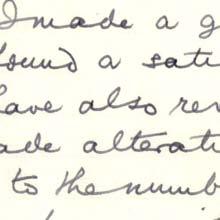 I made a g
found a sati
have also rev
ade alterati
to the numb